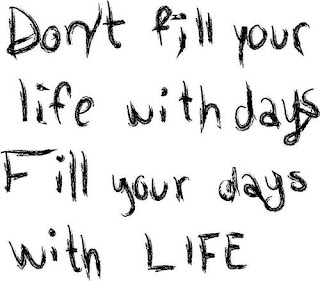 Don't fill your
life with days
Fill your days
with LIFE